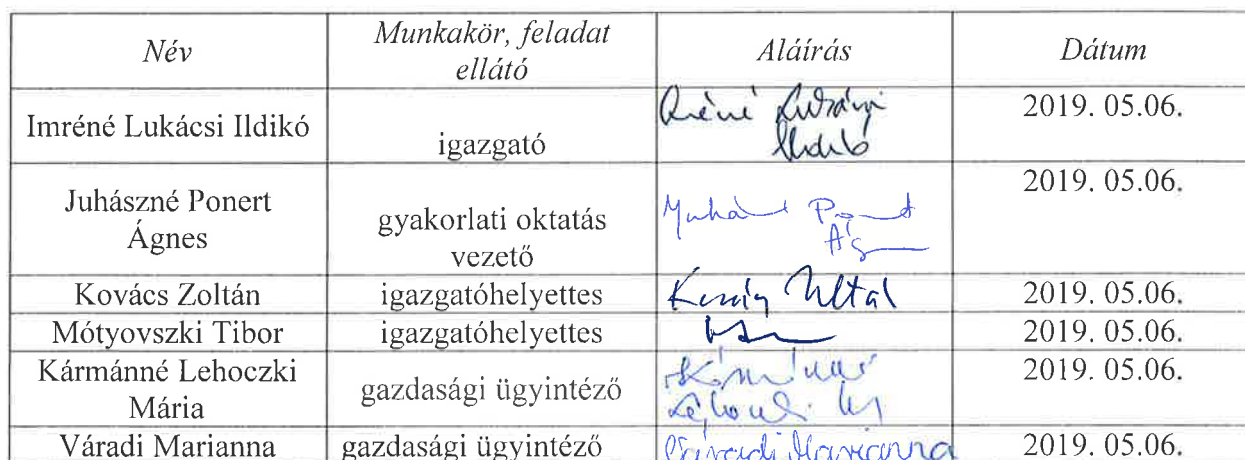 Név Munkakör, feladat ellátó Aláírás Dátum
Imréné Lukácsi Ildikó igazgató 2019. 05.06.
Juhászné Ponert Ágnes gyakorlati oktatás vezető 2019. 05.06.
Kovács Zoltán igazgatóhelyettes 2019. 05.06.
Mótyovszki Tibor igazgatóhelyettes 2019. 05.06.
Kármánné Lehoczki Mária gazdasági ügyintéző 2019. 05.06.
Váradi Marianna gazdasági ügyintéző Váradi Marianna 2019. 05.06.